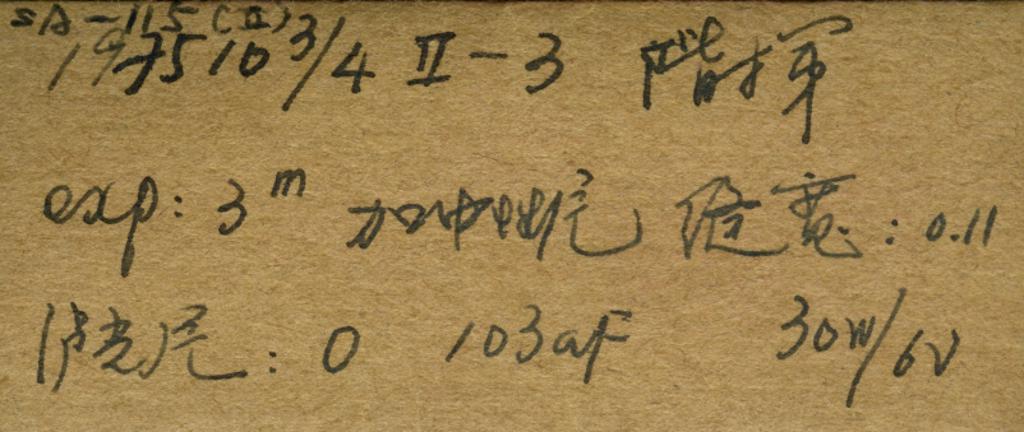 SA-115(Ⅱ)
1975 10 3/4 Ⅱ-3 阶梯
exp: 3m 加中性尾 缝宽: 0.11
滤光片: 0 103aF 30W/6V